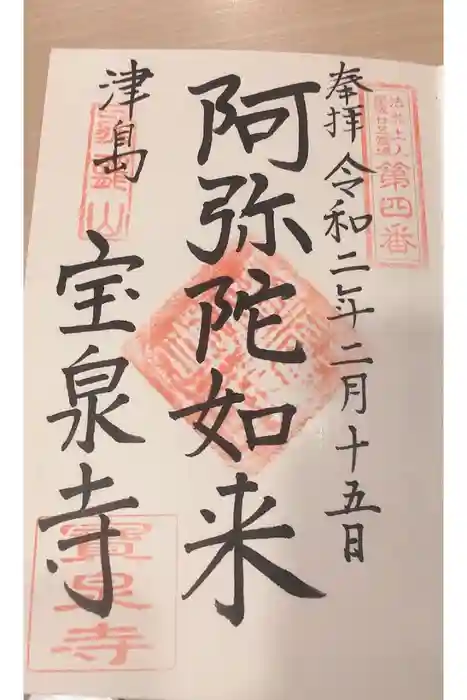 奉拝 令和二年二月十五日
第四番
阿弥陀如来
津島
宝泉寺
寶泉寺